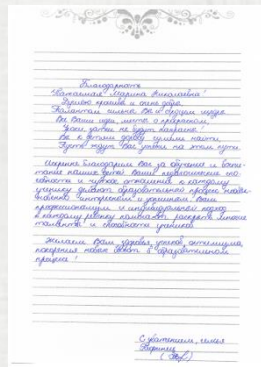 Благодарность
Уважаемая Марина Николаевна!
Душою красива и очень добра,
Талантом сильна Вы и сердцем щедра.
Все Ваши идеи, мечты о прекрасном,
Уроки, затеи не будут напрасны!
Вы к детям дорогу сумели найти,
Пусть ждут Вас успехи на этом пути.
Искренне благодарим Вас за обучение и воспи-
тание наших детей. Ваше
и чуткое отношение к каждому
ученику делают образовательный процесс
интересным и успешным. Ваш
профессионализм и индивидуальный подход
к каждому ребёнку помогают раскрыть личные
таланты и способности учеников.
Желаем Вам здоровья, успехов, оптимизма,
покорения новых высот в образовательном
процессе!
С уважением, семья